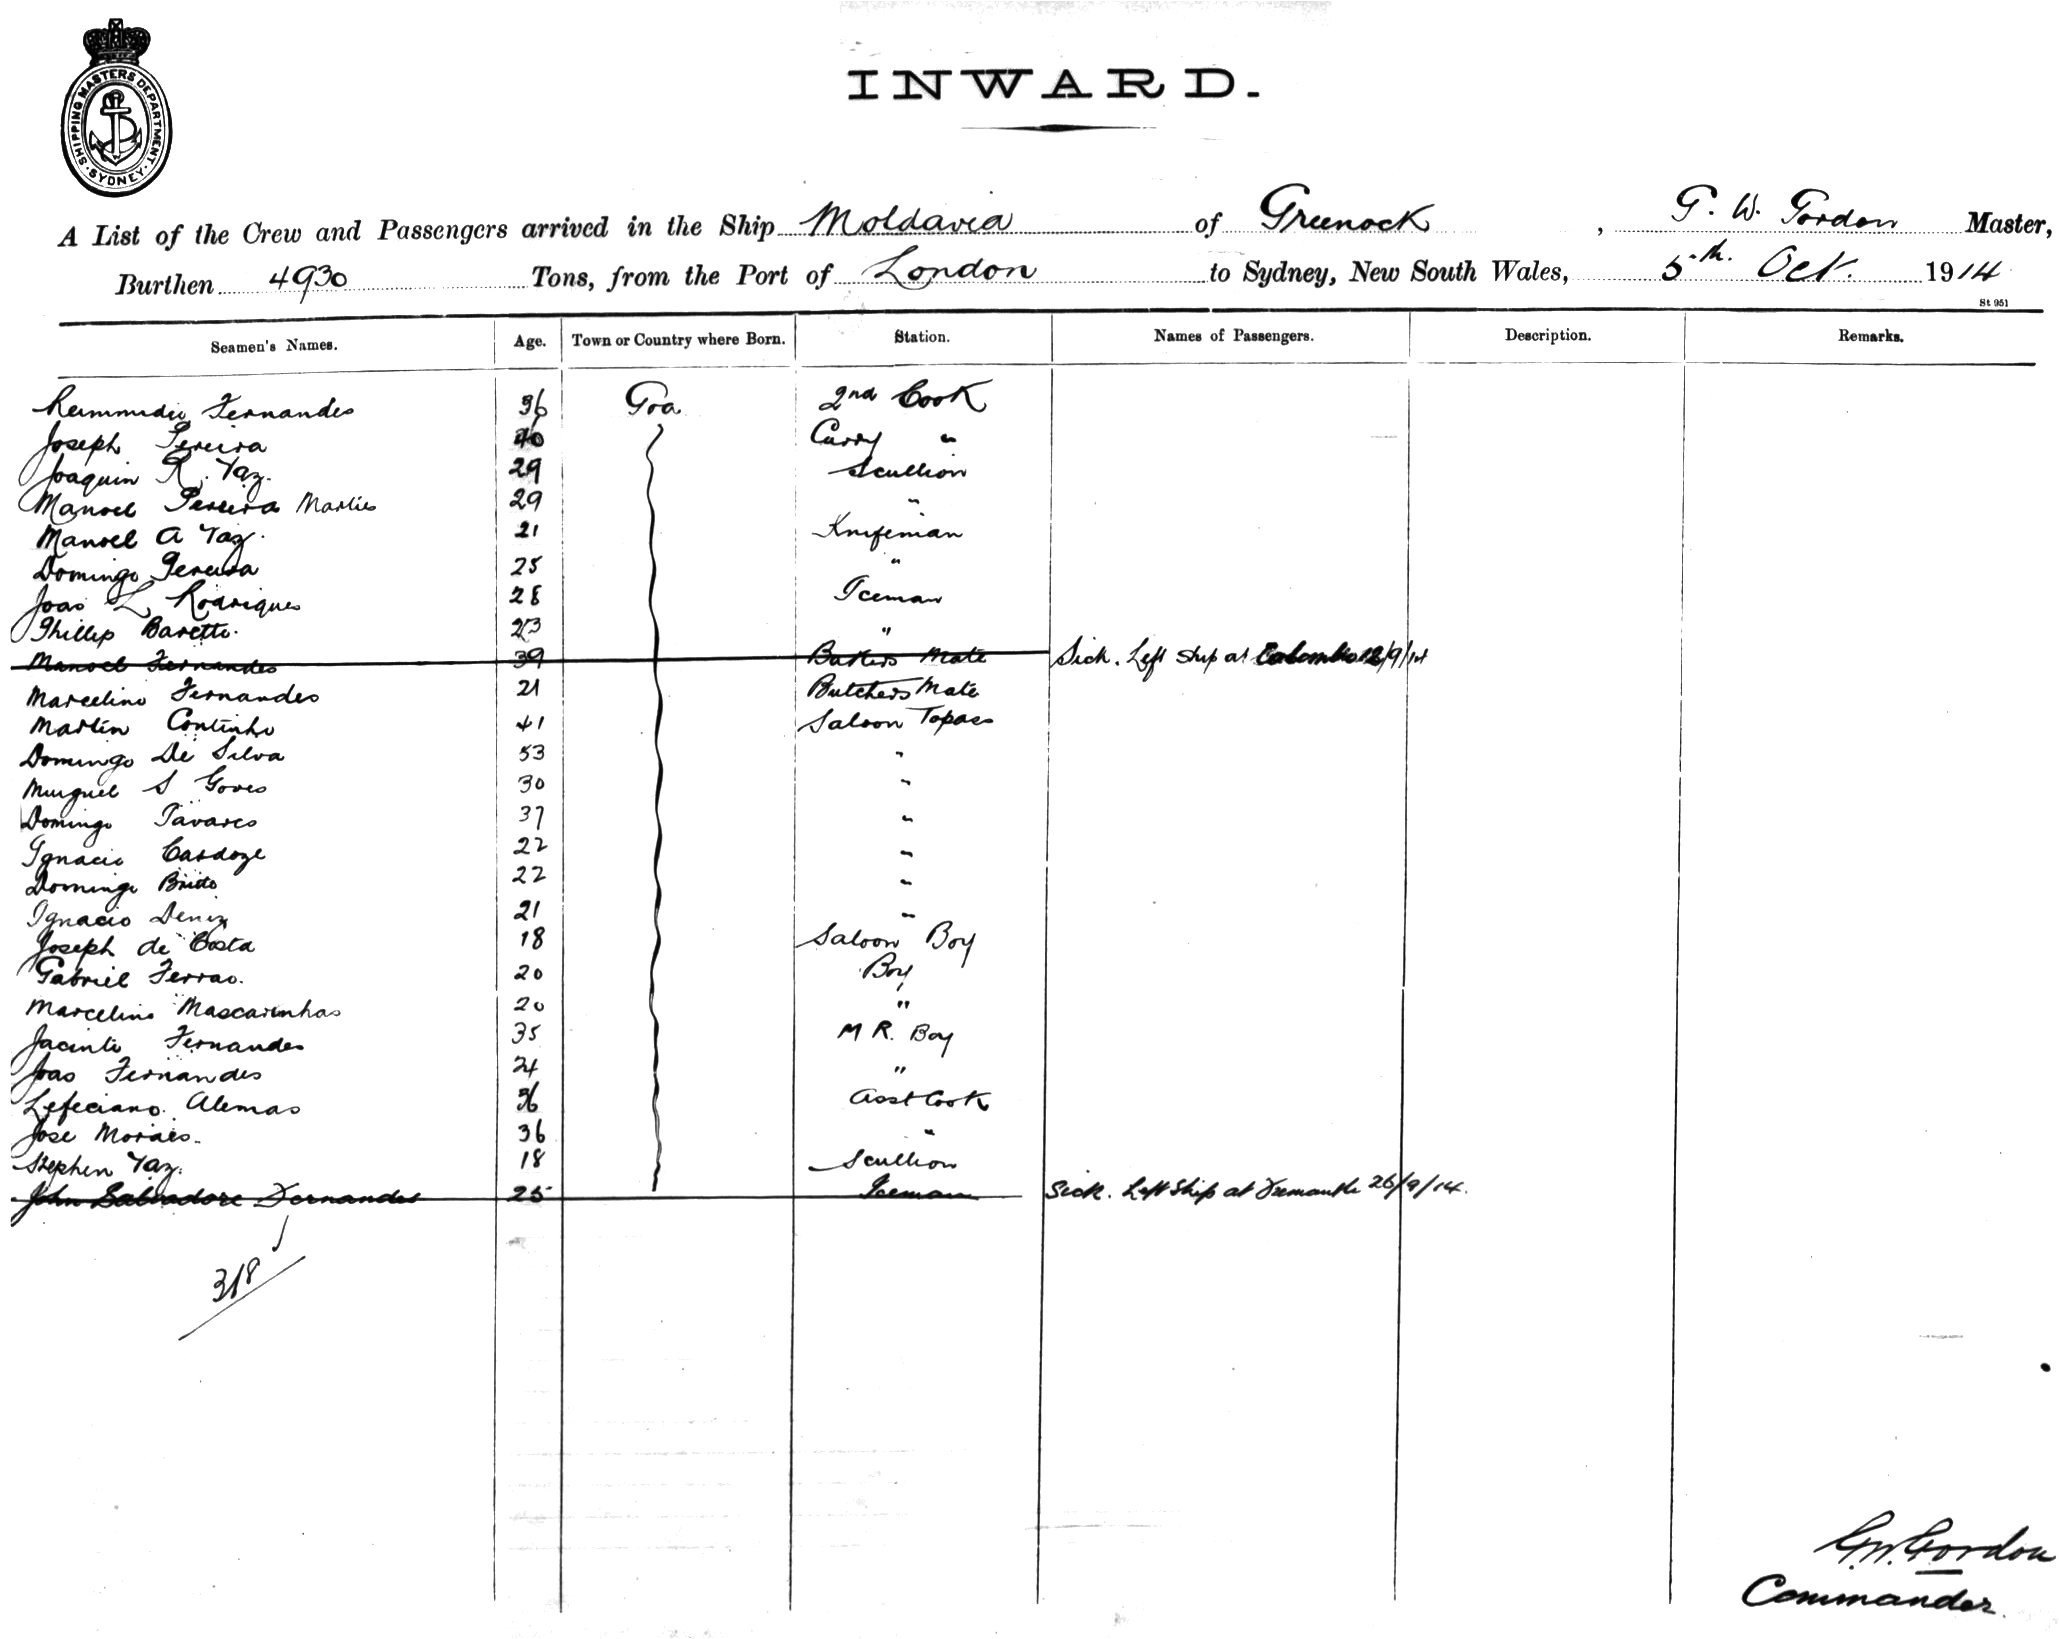 SHIPPING MASTERS DEPARTMENT · SYDNEY ·
INWARD.
A List of the Crew and Passengers arrived in the Ship Moldavia of Greenock, G. W. Gordon Master,
Burthen 4930 Tons, from the Port of London to Sydney, New South Wales, 5th. Oct. 1914
St 951
Seamen's Names. Age. Town or Country where Born. Station. Names of Passengers. Description. Remarks.
Fernandes 36 Goa 2nd Cook
Joseph Pereira 40 Curry "
Joaquin R. Vaz. 29 Scullion
Manoel Pereira 29 "
Manoel A Vaz. 21 Knifeman
Domingo Pereira 25 "
Joao L Rodrigues 28 Iceman
Phillip Baretto. 23 "
Manoel Fernandes 39 Mate Sick. Left ship at Colombo 12/9/14
Marcelino Fernandes 21 Butchers Mate
Martin Continho 41 Saloon Topass
Domingo De Silva 53 "
Murguel S Goves 30 "
Domingo Tavares 37 "
Ignacio Cardoze 22 "
Domingo Britto 22 "
Ignacio Deniz 21 "
Joseph de Costa 18 Saloon Boy
Gabriel Ferrao. 20 Boy
Marcelino Mascarinhas 20 "
Jacinto Fernandes 35 M R. Boy
Joao Fernandes 24 "
Lefeciano. Alemao 36 Asst Cook
Jose Moraes. 36 "
Stephen Vaz. 18 Scullion
John Salvadore Fernandes 25 Iceman Sick. Left Ship at Fremantle 26/9/14.
318
G.W. Gordon
Commander.